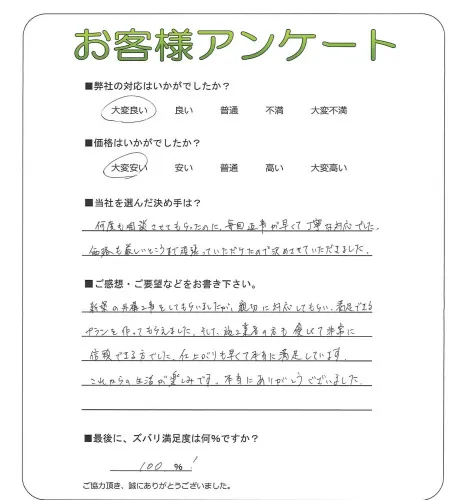 お客様アンケート
■弊社の対応はいかがでしたか？
大変良い 良い 普通 不満 大変不満
■価格はいかがでしたか？
大変安い 安い 普通 高い 大変高い
■当社を選んだ決め手は？
何度も相談させてもらったのに、毎回返事が早くて丁寧な対応でした。
価格も厳しいところまで頑張っていただけたので決めさせていただきました。
■ご感想・ご要望などをお書き下さい。
新築の外構工事をしてもらいましたが、親切に対応してもらい、満足できる
プランを作ってもらえました。そして、施工業者の方も優しくて非常に
信頼できる方でした。仕上がりも早くて本当に満足しています。
これからの生活が楽しみです。本当にありがとうございました。
■最後に、ズバリ満足度は何%ですか？
100 %!
ご協力頂き、誠にありがとうございました。